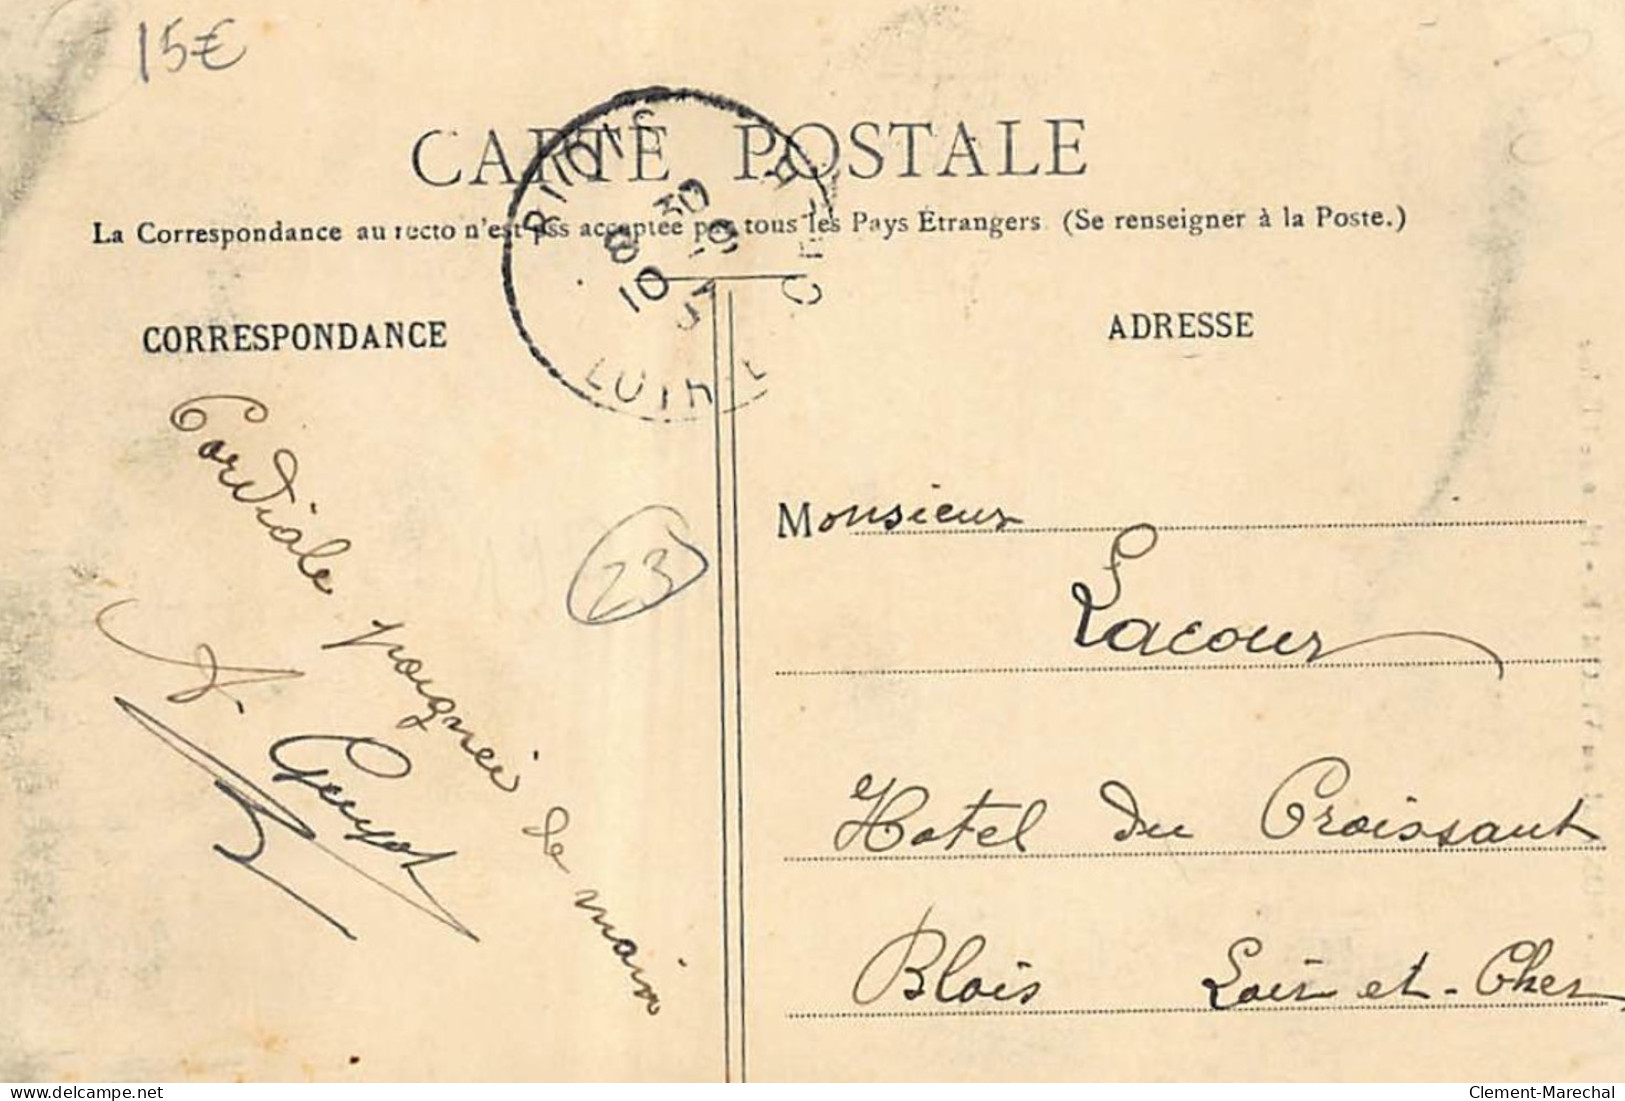 15€
CARTE POSTALE
La Correspondance au recto n'est pas acceptée par tous les Pays Étrangers (Se renseigner à la Poste.)
CORRESPONDANCE
ADRESSE
Cordiale poignei de main
A. Guyot
23
Monsieur
Lacour
Hotel du Croissant
Blois Loir-et-Cher
delcampe.net
Clement-Marechal